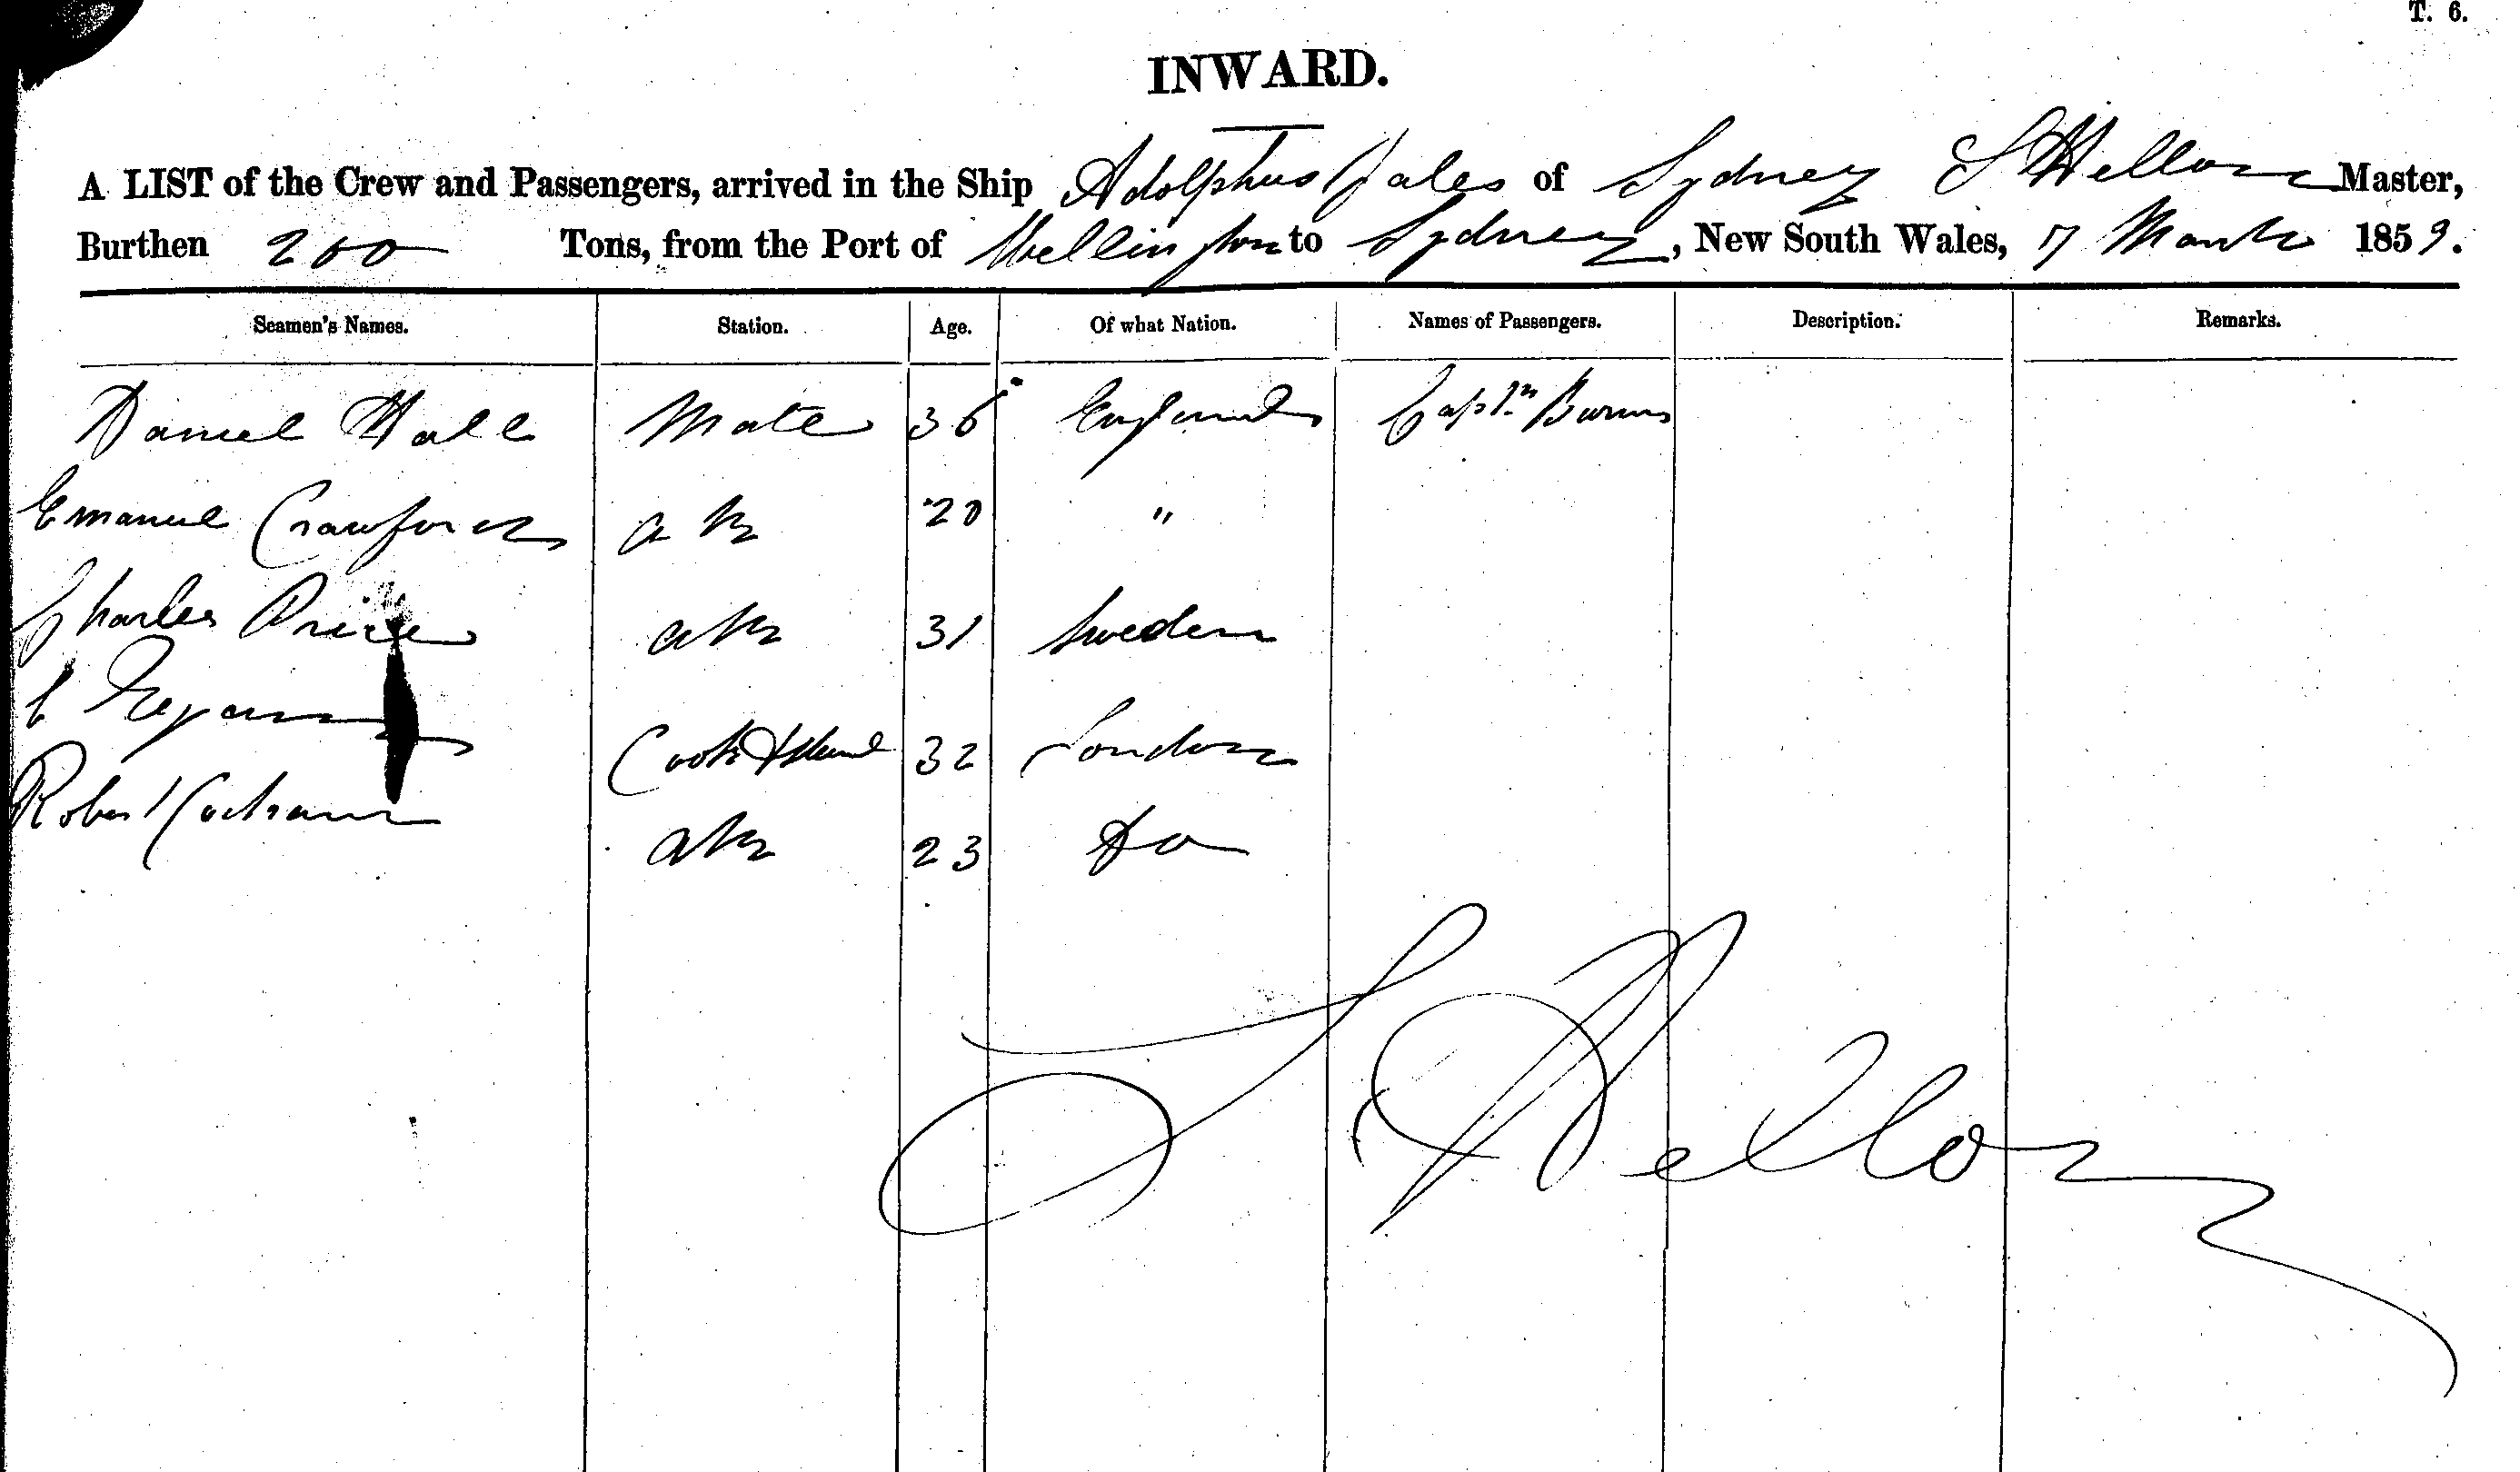 T. 6.
INWARD.
A LIST of the Crew and Passengers, arrived in the Ship Adolphus Yates of Sydney S Mellon Master,
Burthen 200 Tons, from the Port of Wellington to Sydney, New South Wales, 7 March 1859.
Seamen's Names. Station. Age. Of what Nation. Names of Passengers. Description. Remarks.
Daniel Hall Mate 36 England Captn Burns
Emanuel Crawford AB 20 "
Charles Price AB 31 Sweden
Cook & Steward 32 London
Robert Cochrane AB 23 Do